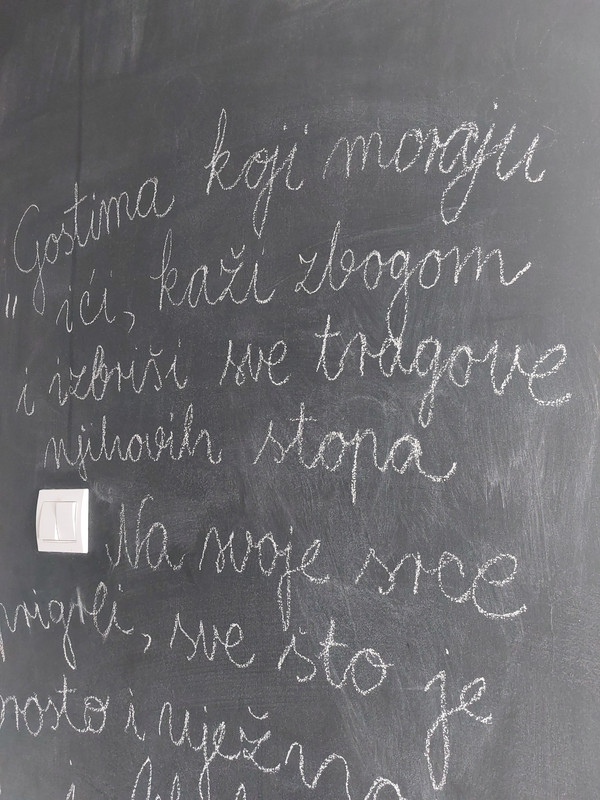 Gostima koji moraju
" ići, kaži zbogom
i izbriši sve tragove
njihovih stopa
Na svoje srce
prigrli, sve što je
i nježno
i